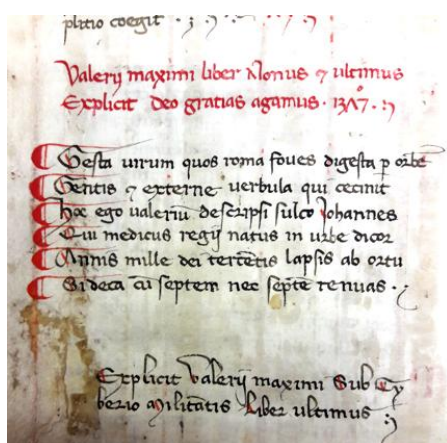 plitio coegit
Valerij maximi liber Nonus ⁊ ultimus
Explicit deo gratias agamus · 13Λ7 ·
Gesta uirum quos roma foues digesta p orbē
Gentis ⁊ externe uerbula qui cecinit
Hoc ego ualeriū descripsi sulco Iohannes
Qui medicus regij natus in urbe dicor
Annis mille dei tercētis lapsis ab ortu
Si deca cū septem nec septē renuas ·
Explicit Valerij maximi Sub Ty
berio Militātis Liber ultimus